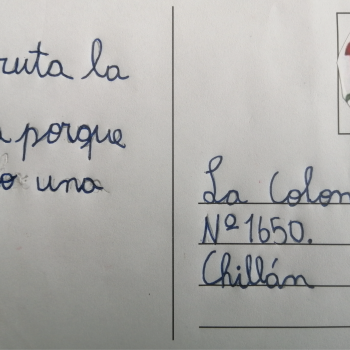 ruta la
porque
o una
La Colon
Nº 1650.
Chillán